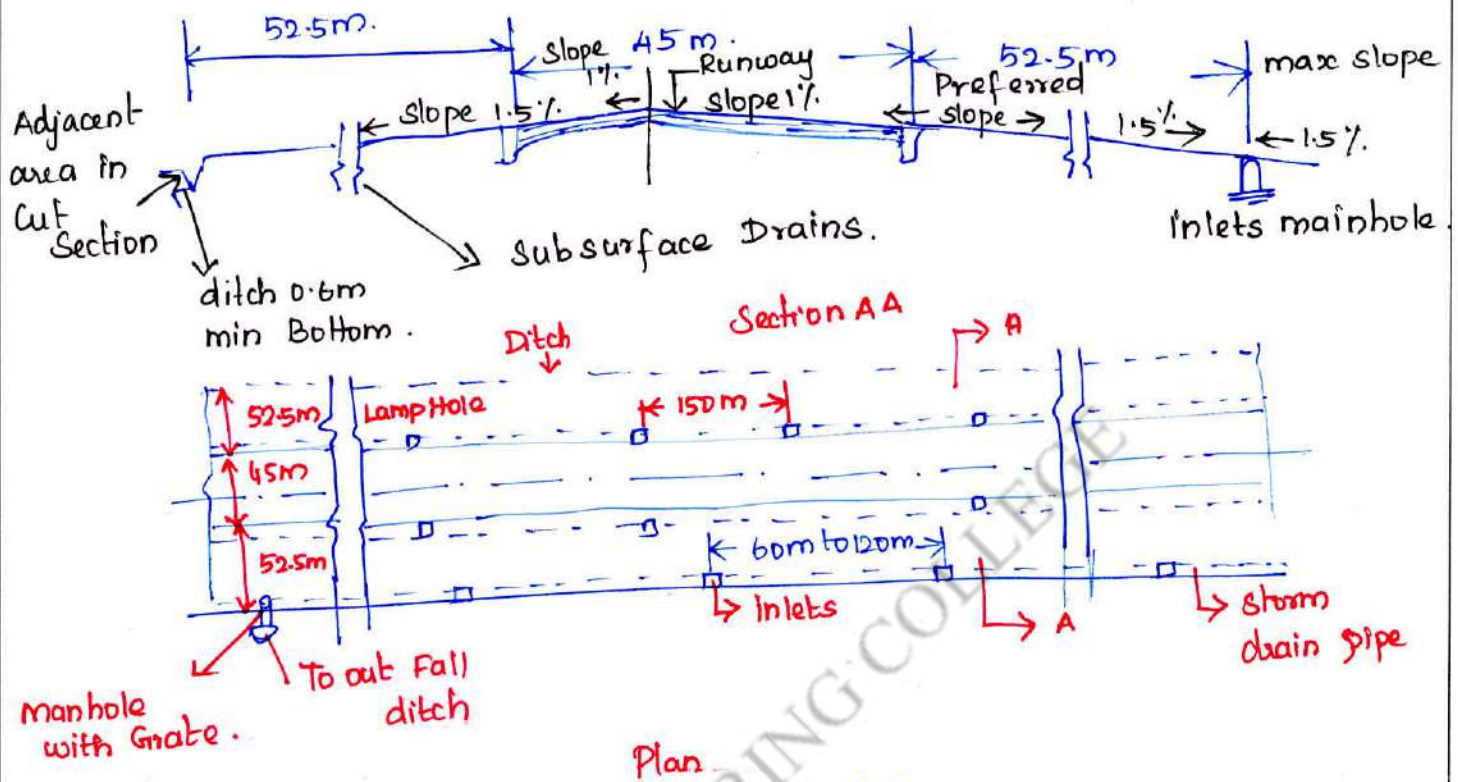 52.5m.
Slope 45 m.
1%.
Runway
slope 1%.
52.5m
Preferred
slope
max slope
Adjacent
area in
Cut
Section
Slope 1.5%
1.5%
1.5%.
Subsurface Drains.
inlets mainhole.
ditch 0.6m
min Bottom.
Section AA
Ditch
A
52.5m
Lamp Hole
150m
45m
52.5m
60m to 120m
Inlets
A
Storm
drain pipe
To out Fall
ditch
manhole
with Grate.
Plan
RING COLLEGE